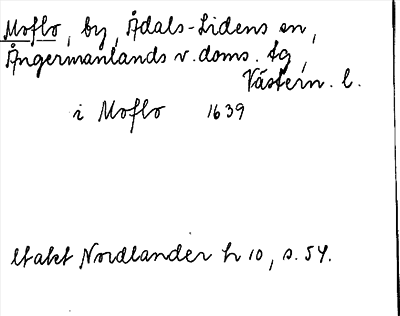 Moflo, by, Ådals-Lidens sn,
Ångermanlands v. doms. tg,
Västern. l.
i Moflo 1639
Utakt Nordlander h 10, s. 54.